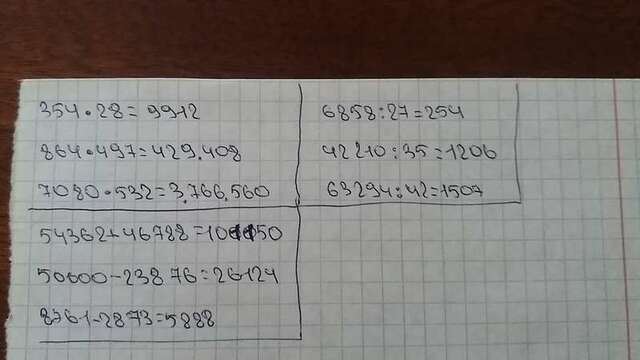 354·28=9912
864·497=429,408
7080·532=3,766,560
54362+46788=101150
50000-23876=26124
8761-2873=5888
6858:27=254
42210:35=1206
63294:42=1507